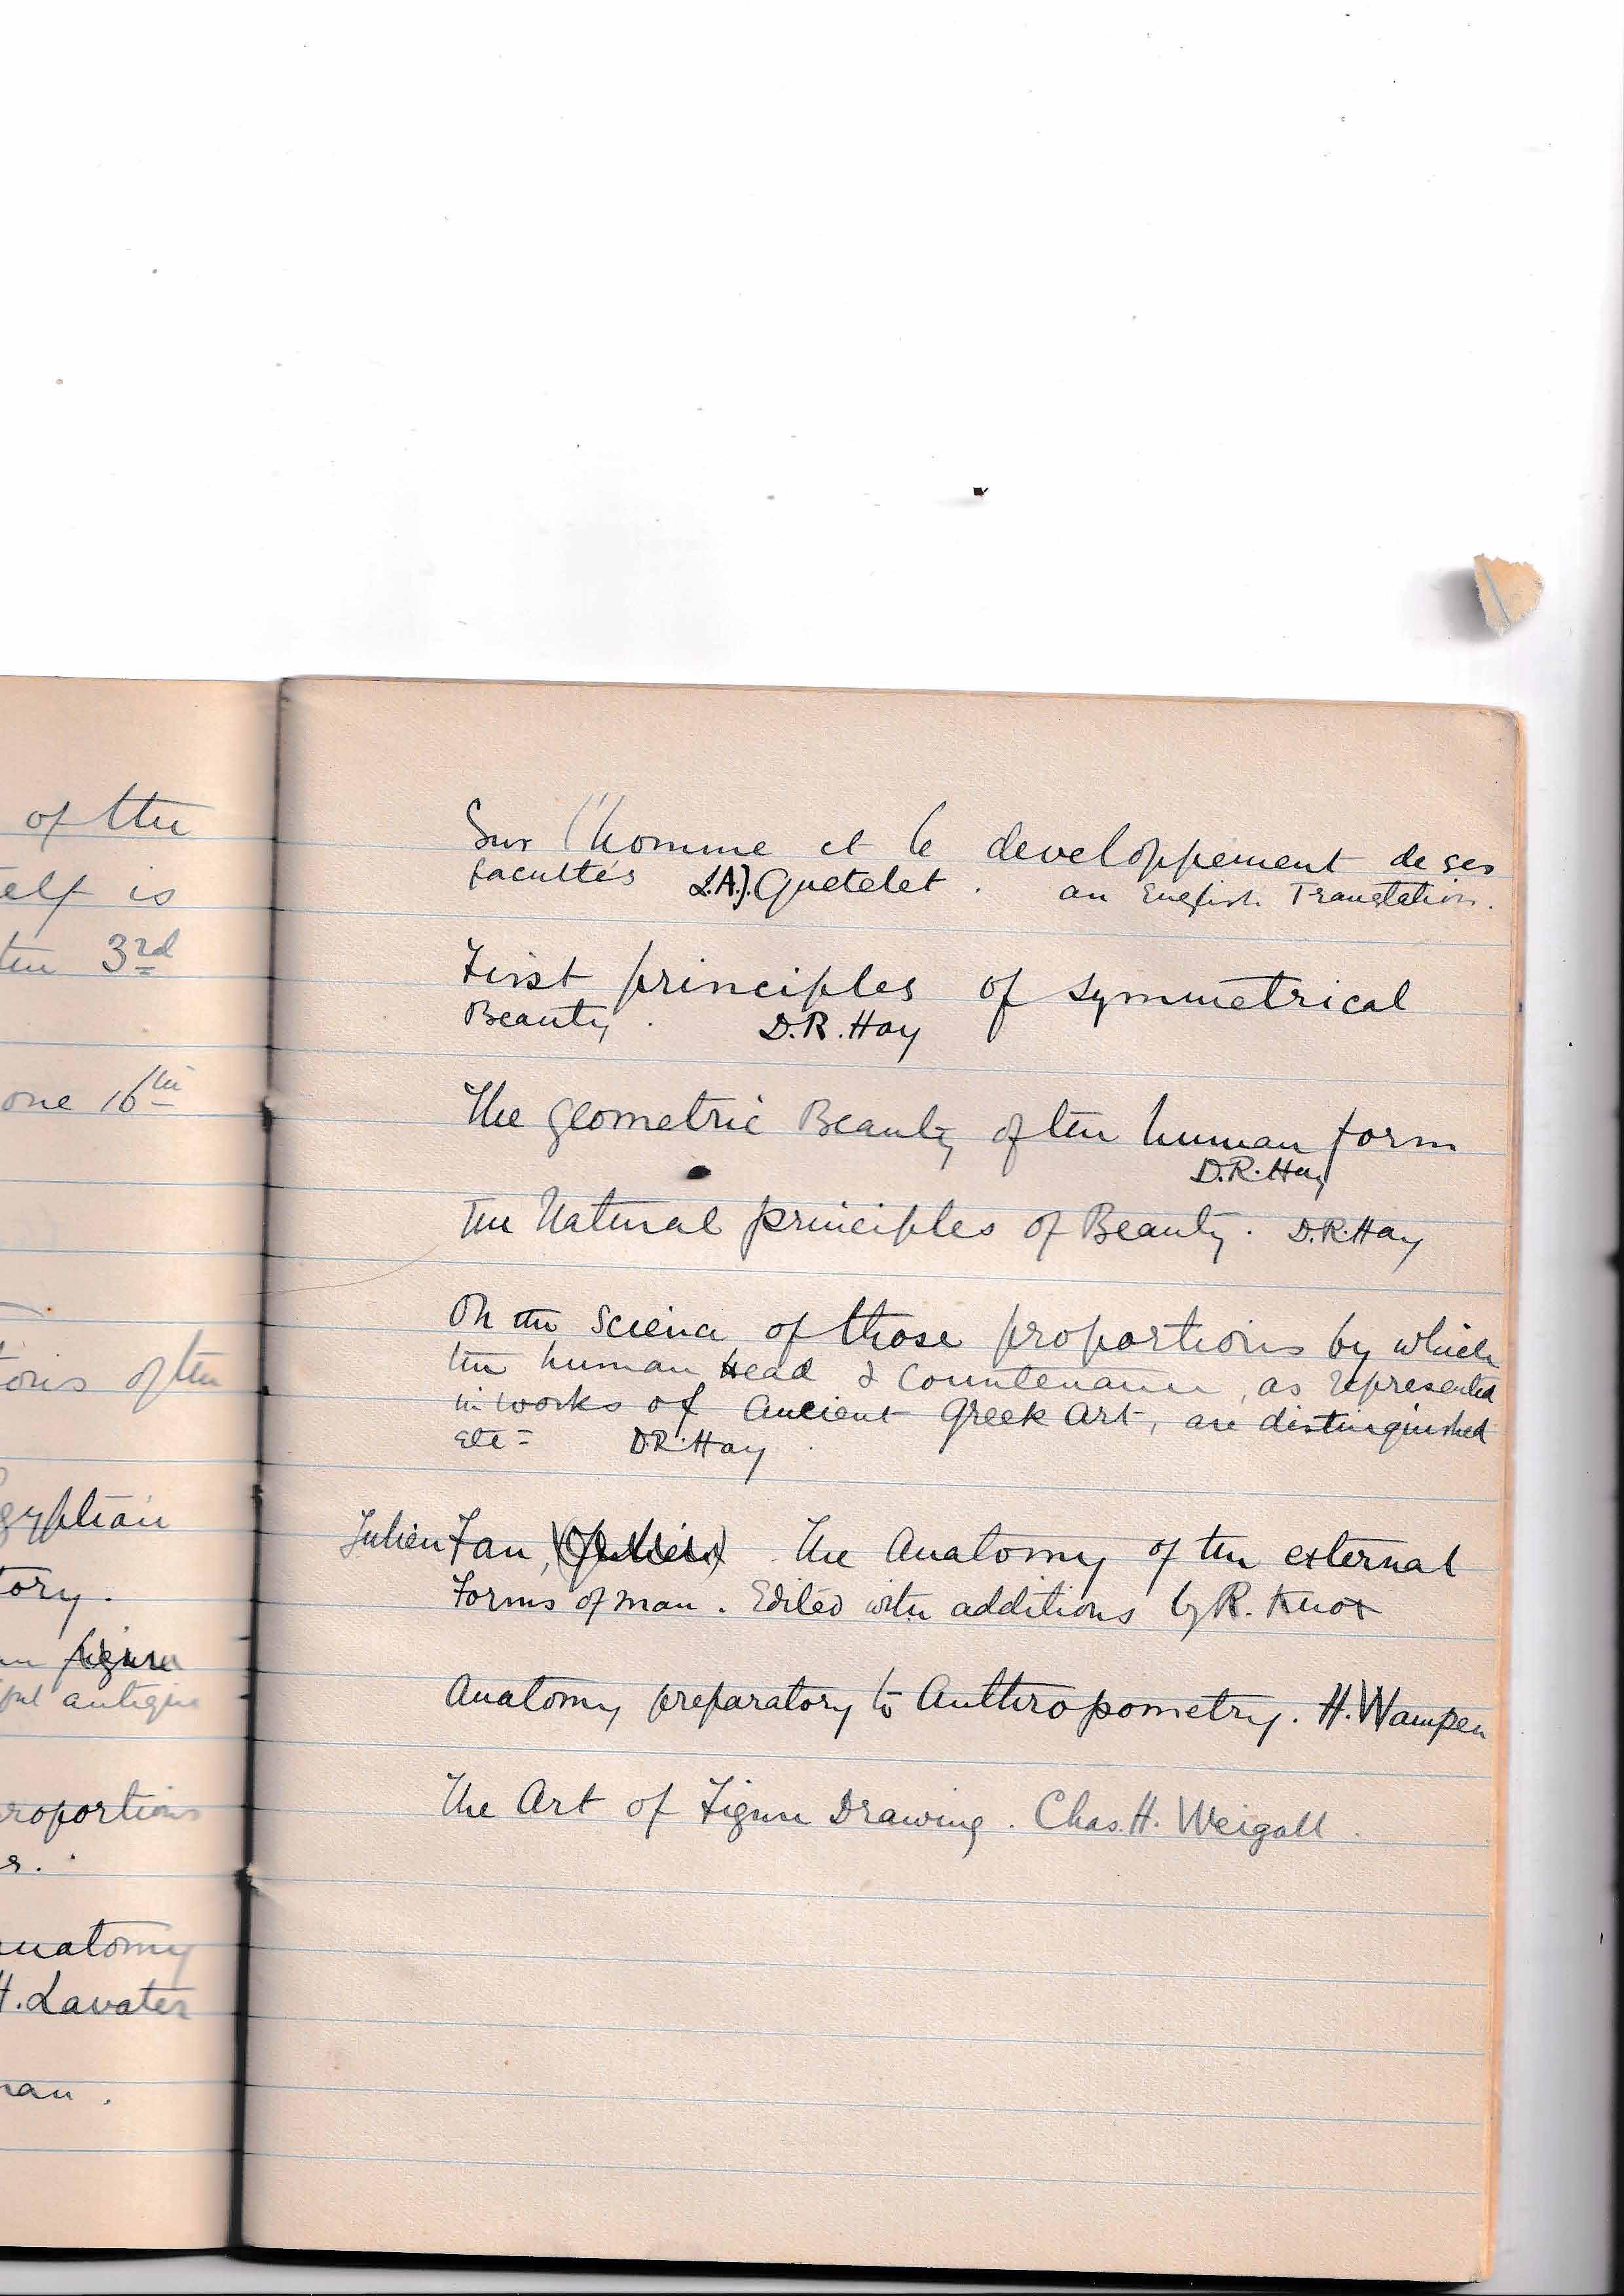 of the
elf is
the 3rd
one 16th
tions of the
gyptian
tory.
figure
ful antique
roportions
s.
natomy
H. Lavater
man.
Sur l'homme et le developpement de ses
facultés L.A.J. Quetelet. an English Translation.
First principles of symmetrical
Beauty. D.R. Hay
The geometric Beauty of the human form
D.R. Hay
The Natural principles of Beauty. D.R. Hay
On the science of those proportions by which
the human Head & Countenance, as represented
in works of Ancient Greek Art, are distinguished
etc = D.R. Hay.
Julien Fau, The Anatomy of the external
Forms of man. Edited with additions by R. Knox
Anatomy preparatory to Anthropometry. H. Wampen
The Art of Figure Drawing. Chas. H. Weigall.